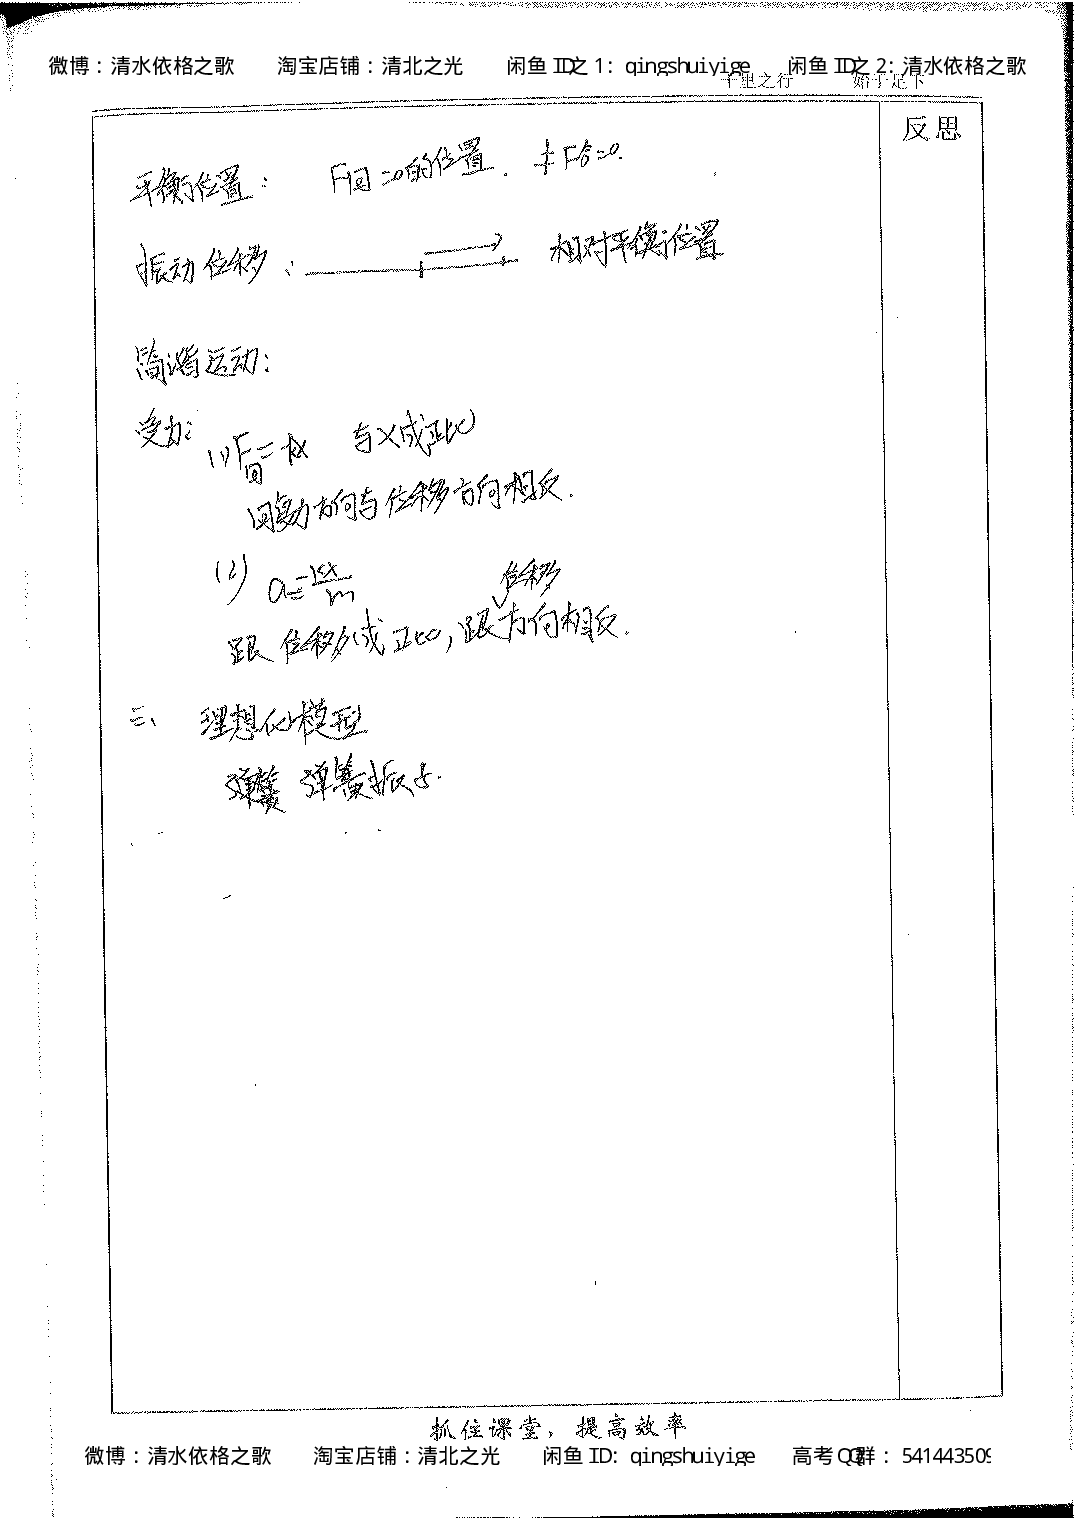 微博：清水依格之歌 淘宝店铺：清北之光 闲鱼ID之1: qingshuiyige 闲鱼ID之2:清水依格之歌
千里之行 始于足下
反思
平衡位置： F回=0的位置. 非F合=0.
振动位移： 相对平衡位置
简谐运动：
受力：
(1)F回=-kx 与x成正比
回复力方向与位移方向相反.
(2) a=-kx/m
位移
跟位移成正比,跟方向相反.
三、 理想化模型
弹簧振子.
抓住课堂，提高效率
微博：清水依格之歌 淘宝店铺：清北之光 闲鱼ID: qingshuiyige 高考QQ群：541443509